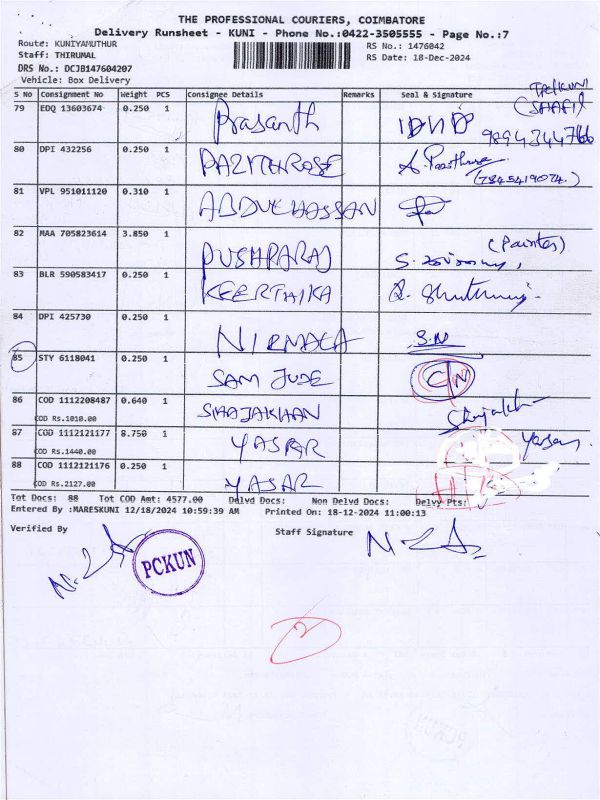 THE PROFESSIONAL COURIERS, COIMBATORE
Delivery Runsheet - KUNI - Phone No.:0422-3505555 - Page No.:7
Route: KUNIYAMUTHUR
RS No.: 1476042
Staff: THIRUMAL
RS Date: 18-Dec-2024
DRS No.: DCJB147604207
Vehicle: Box Delivery
S No Consignment No Weight PCS Consignee Details Remarks Seal & Signature
79 EDQ 13603674 0.250 1 Prasanth
(SHAFI)
9894344766
80 DPI 432256 0.250 1
81 VPL 951011120 0.310 1 ABDULHASSAN
82 MAA 705823614 3.850 1 PUSHPARAJ (Painter)
83 BLR 590583417 0.250 1 KEERTHIKA
84 DPI 425730 0.250 1 NIRMALA S.N
85 STY 6118041 0.250 1 SAM JUDE C/N
86 COD 1112208487 0.640 1 SHAJAKHAN
COD Rs.1010.00
87 COD 1112121177 8.750 1 YASAR
COD Rs.1440.00
88 COD 1112121176 0.250 1 YASAR
COD Rs.2127.00
Tot Docs: 88 Tot COD Amt: 4577.00 Delvd Docs: Non Delvd Docs: Delvy Pts:
Entered By :MARESKUNI 12/18/2024 10:59:39 AM Printed On: 18-12-2024 11:00:13
Verified By Staff Signature
PCKUN